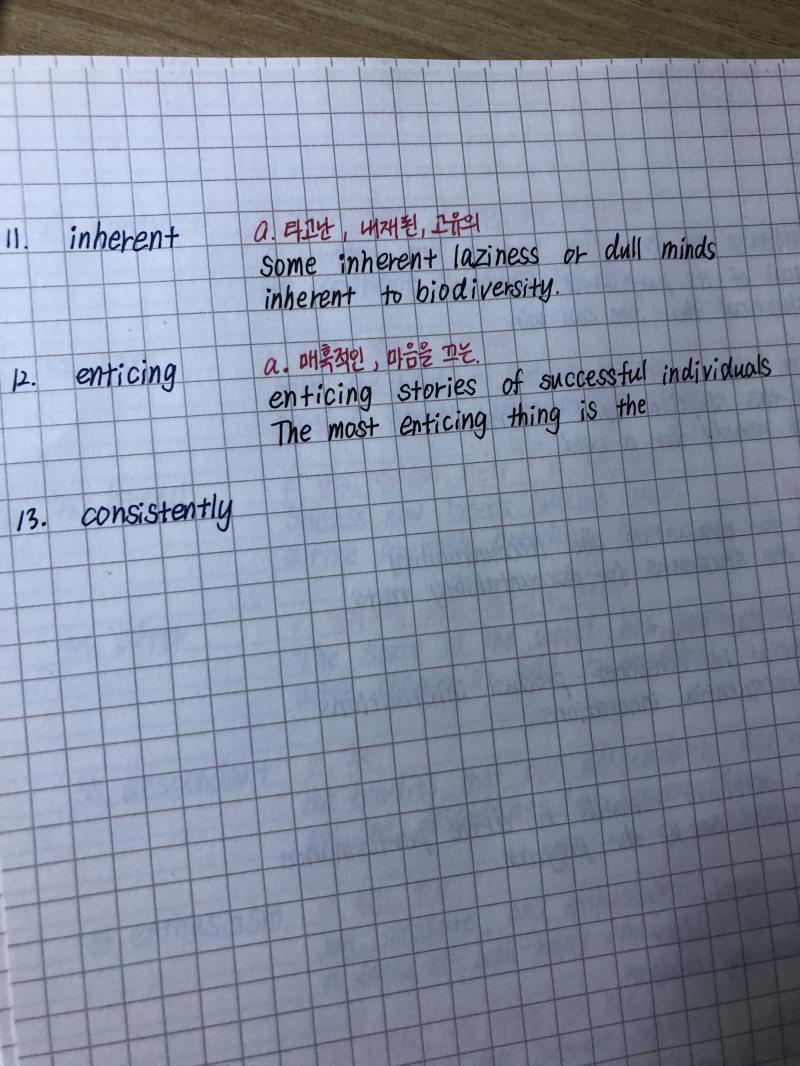 11. inherent a. 타고난, 내재된, 고유의
some inherent laziness or dull minds
inherent to biodiversity.
12. enticing a. 매혹적인, 마음을 끄는.
enticing stories of successful individuals
The most enticing thing is the
13. consistently